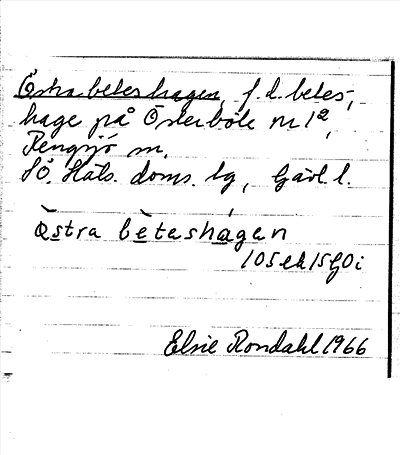 Östra beteshagen, f.d. betes-,
hage på Österböle nr 1²,
Rengsjö sn,
SÖ. Häls. doms. lg, Gävl. l.
Östra beteshagen
10 5 ek 15 G0 i
Elsie Rondahl 1966